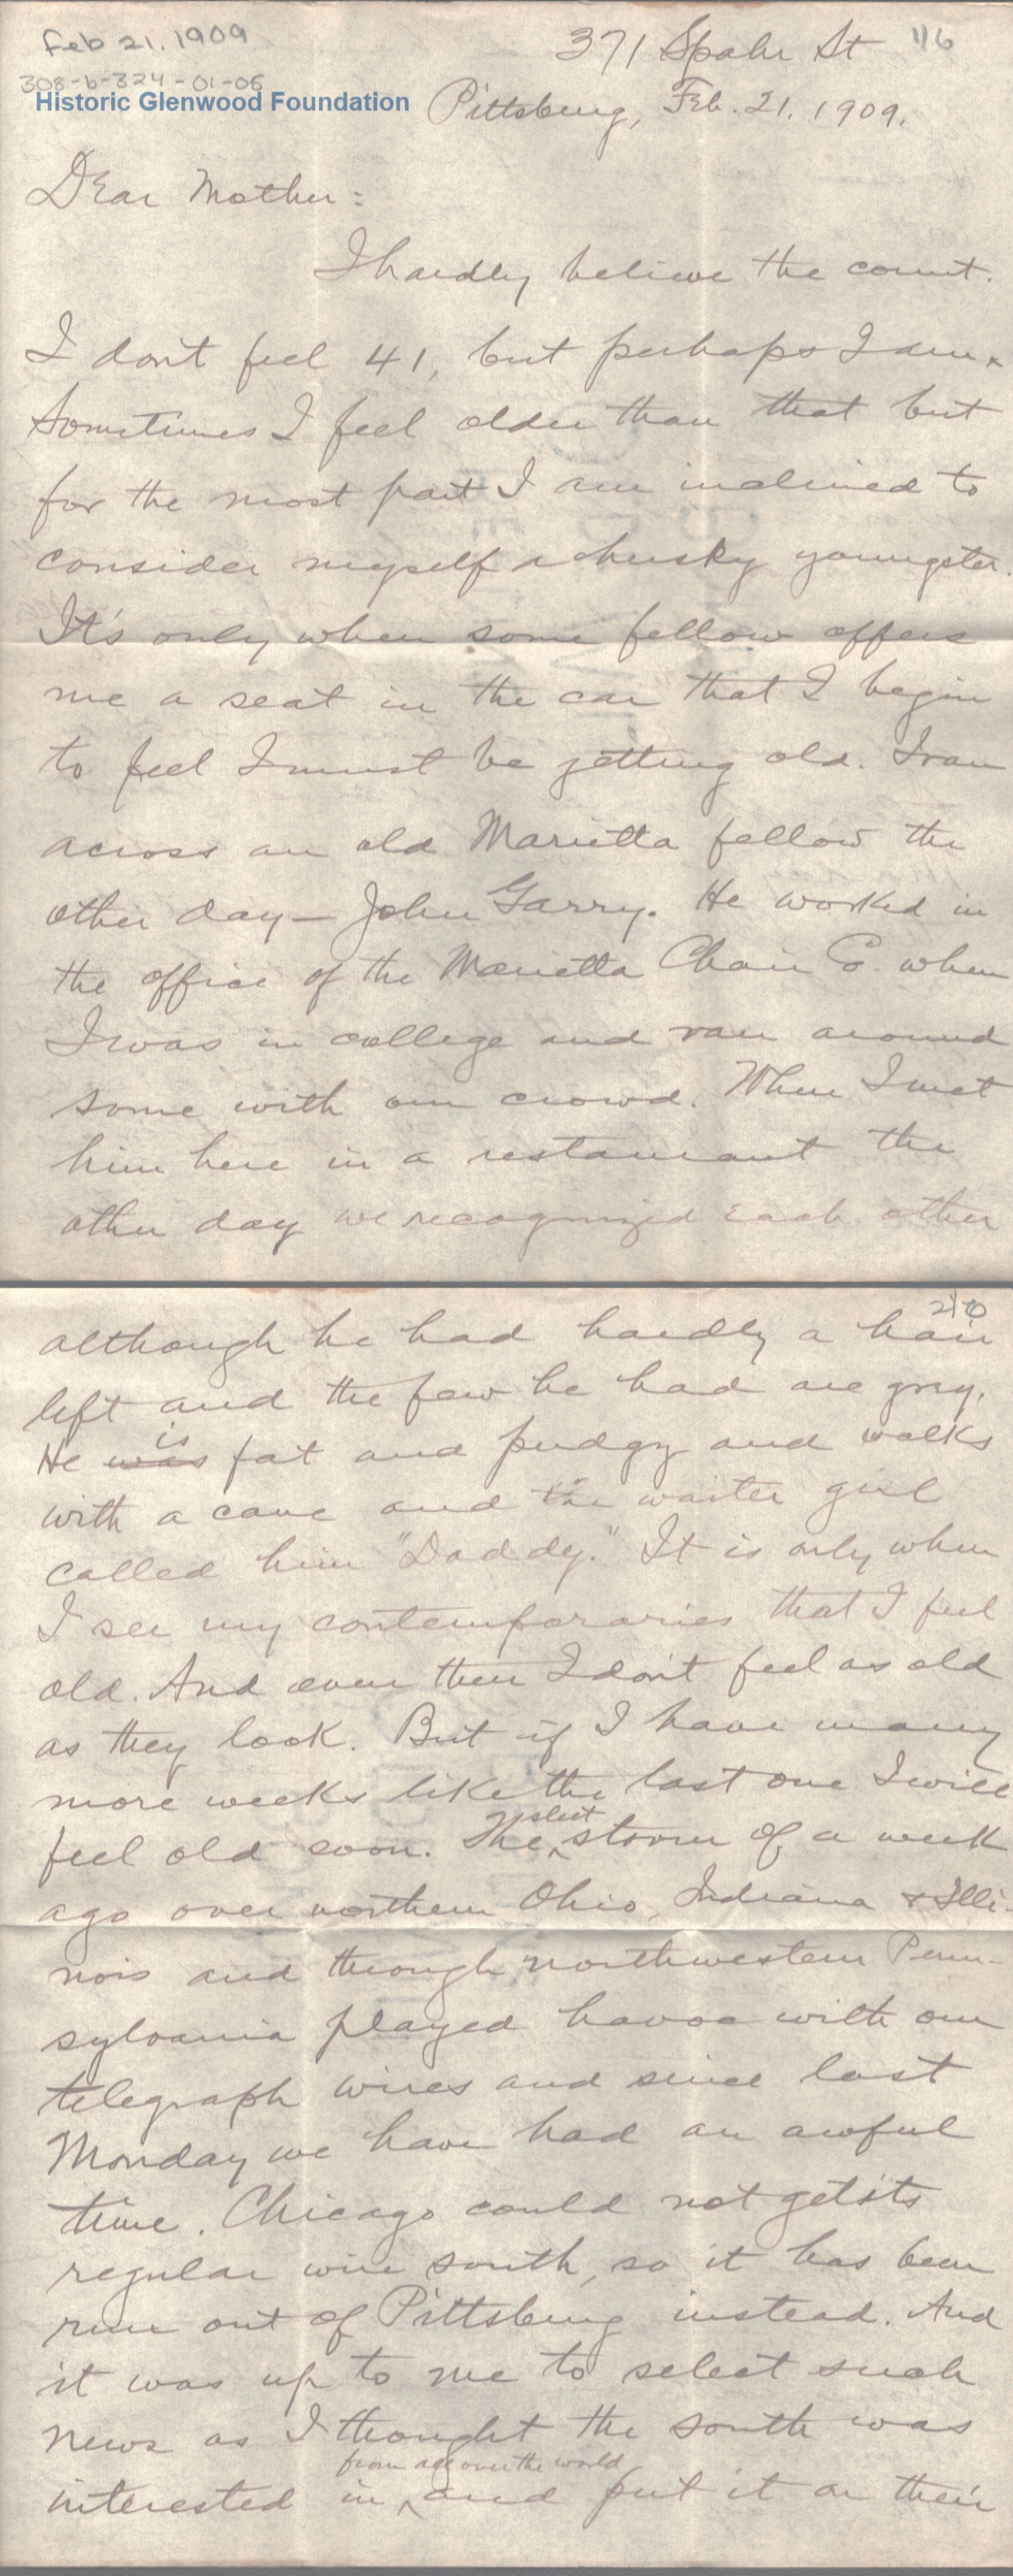 Feb 21, 1909
308-b-324-01-05
Historic Glenwood Foundation
371 Spahr St
116
Pittsburg, Feb. 21, 1909.
Dear Mother:
I hardly believe the count.
I don't feel 41, but perhaps I am.
Sometimes I feel older than that but
for the most part I am inclined to
consider myself a husky youngster.
It's only when some fellow offers
me a seat in the car that I begin
to feel I must be getting old. I ran
across an old Marietta fellow the
other day — John Garry. He worked in
the office of the Marietta Chair Co. when
I was in college and ran around
some with our crowd. When I met
him here in a restaurant the
other day we recognized each other
although he had hardly a hair
left and the few he had are gray.
is
He was fat and pudgy and walks
with a cane and the waiter girl
called him "Daddy." It is only when
I see my contemporaries that I feel
old. And even then I don't feel as old
as they look. But if I have many
more weeks like the last one I will
sleet
feel old soon. The storm of a week
ago over northern Ohio, Indiana & Illi-
nois and through northwestern Penn-
sylvania played havoc with our
telegraph wires and since last
Monday we have had an awful
time. Chicago could not get its
regular wire south, so it has been
run out of Pittsburg instead. And
it was up to me to select such
news as I thought the south was
from all over the world
interested in and put it on their